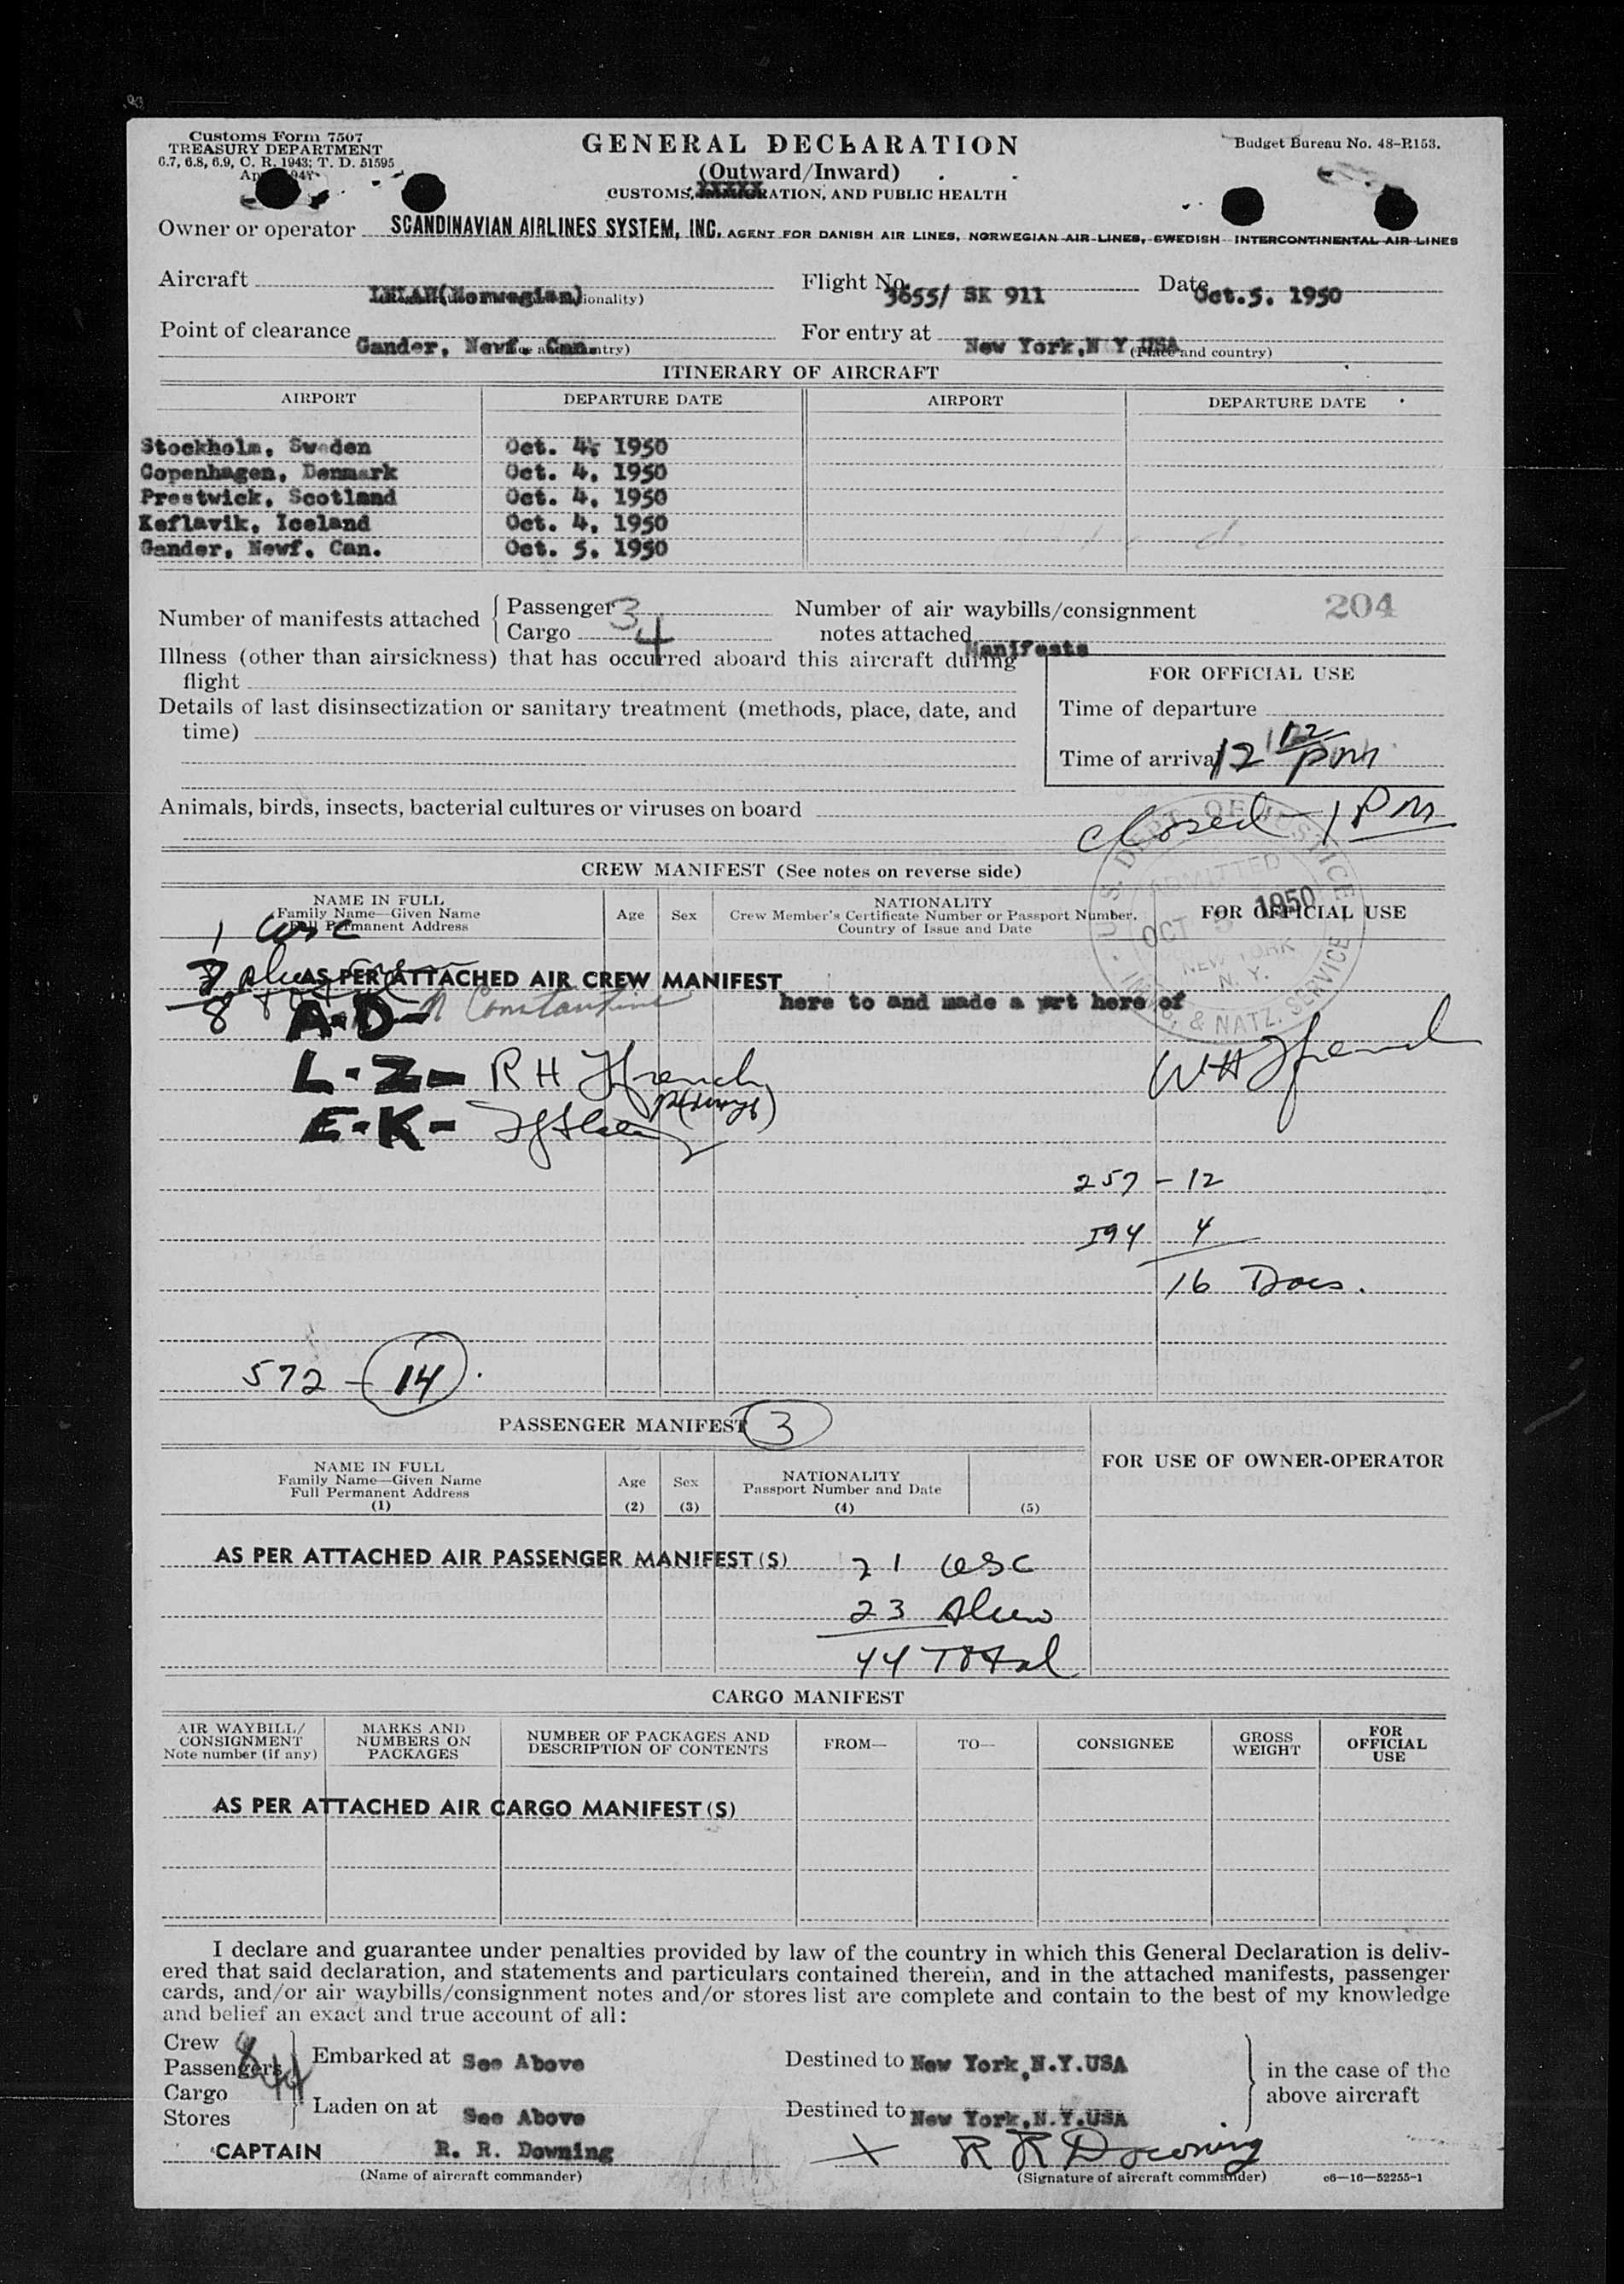 Customs Form 7507
TREASURY DEPARTMENT
6.7, 6.8, 6.9, C. R. 1943; T. D. 51595
GENERAL DECLARATION
(Outward/Inward)
CUSTOMS, IMMIGRATION, AND PUBLIC HEALTH
Budget Bureau No. 48-R153.
Owner or operator SCANDINAVIAN AIRLINES SYSTEM, INC. AGENT FOR DANISH AIR LINES, NORWEGIAN AIR LINES, SWEDISH INTERCONTINENTAL AIR LINES
Aircraft (Norwegian) Flight No. 3655/ SK 911 Date Oct.5. 1950
Point of clearance Gander, Newf. Can. For entry at New York,N Y USA
(Place and country)
ITINERARY OF AIRCRAFT
AIRPORT DEPARTURE DATE AIRPORT DEPARTURE DATE
Stockholm, Sweden Oct. 4, 1950
Copenhagen, Denmark Oct. 4, 1950
Prestwick, Scotland Oct. 4, 1950
Keflavik, Iceland Oct. 4, 1950
Gander, Newf. Can. Oct. 5. 1950
Number of manifests attached { Passenger 3
Cargo 4
Number of air waybills/consignment
notes attached Manifests
204
Illness (other than airsickness) that has occurred aboard this aircraft during
flight
Details of last disinsectization or sanitary treatment (methods, place, date, and
time)
FOR OFFICIAL USE
Time of departure
Time of arrival 12 pm
Animals, birds, insects, bacterial cultures or viruses on board
closed 1 PM
CREW MANIFEST (See notes on reverse side)
NAME IN FULL
Family Name—Given Name
Full Permanent Address
Age
Sex
NATIONALITY
Crew Member's Certificate Number or Passport Number,
Country of Issue and Date
FOR OFFICIAL USE
U. S. DEPT. OF JUSTICE
ADMITTED
OCT 5 1950
NEW YORK
N. Y.
& NATZ. SERVICE
1 USC
7
8
AS PER ATTACHED AIR CREW MANIFEST
here to and made a prt here of
A-D- N Constantine
L-Z- R H Ffrench
E-K-
W H Ffrench
257 - 12
I94 4
16 Docs.
572 - 14
PASSENGER MANIFEST 3
NAME IN FULL
Family Name—Given Name
Full Permanent Address
(1)
Age
(2)
Sex
(3)
NATIONALITY
Passport Number and Date
(4)
(5)
FOR USE OF OWNER-OPERATOR
AS PER ATTACHED AIR PASSENGER MANIFEST(S)
21 USC
23 Alien
44 Total
CARGO MANIFEST
AIR WAYBILL/
CONSIGNMENT
Note number (if any)
MARKS AND
NUMBERS ON
PACKAGES
NUMBER OF PACKAGES AND
DESCRIPTION OF CONTENTS
FROM—
TO—
CONSIGNEE
GROSS
WEIGHT
FOR
OFFICIAL
USE
AS PER ATTACHED AIR CARGO MANIFEST(S)
I declare and guarantee under penalties provided by law of the country in which this General Declaration is deliv-
ered that said declaration, and statements and particulars contained therein, and in the attached manifests, passenger
cards, and/or air waybills/consignment notes and/or stores list are complete and contain to the best of my knowledge
and belief an exact and true account of all:
Crew 8
Passengers 44
Cargo
Stores
Embarked at See Above
Laden on at See Above
Destined to New York,N.Y.USA
Destined to New York,N.Y.USA
in the case of the
above aircraft
CAPTAIN R. R. Downing
(Name of aircraft commander)
X R R Downing
(Signature of aircraft commander)
c6—16—52255-1